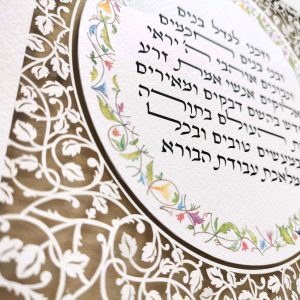 וזכני לגדל בנים
ובני בנים חכמים
ונבונים אוהבי ה' יראי
אלקים אנשי אמת זרע
בהשם דבקים ומאירים
העולם בתורה
במעשים טובים ובכל
מלאכת עבודת הבורא